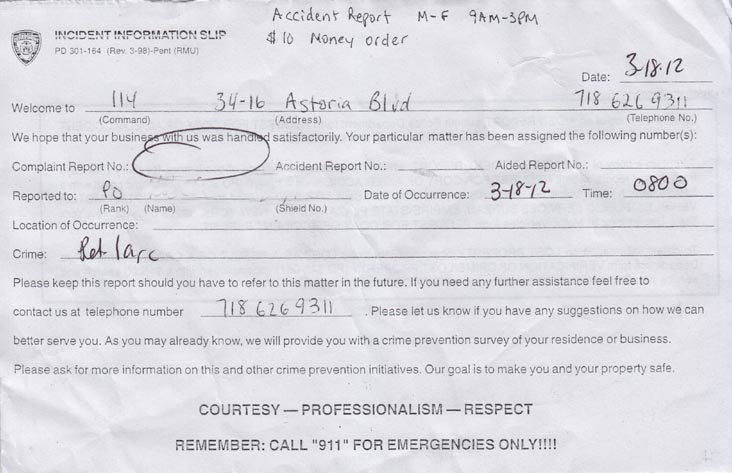 Accident Report M-F 9AM-3PM
$10 Money order
INCIDENT INFORMATION SLIP
PD 301-164 (Rev. 3-98)-Pent (RMU)
Date: 3-18-12
Welcome to 114 34-16 Astoria Blvd 718 626 9311
(Command) (Address) (Telephone No.)
We hope that your business with us was handled satisfactorily. Your particular matter has been assigned the following number(s):
Complaint Report No.: Accident Report No.: Aided Report No.:
Reported to: PO Date of Occurrence: 3-18-12 Time: 0800
(Rank) (Name) (Shield No.)
Location of Occurrence:
Crime: Pet larc
Please keep this report should you have to refer to this matter in the future. If you need any further assistance feel free to
contact us at telephone number 718 626 9311 . Please let us know if you have any suggestions on how we can
better serve you. As you may already know, we will provide you with a crime prevention survey of your residence or business.
Please ask for more information on this and other crime prevention initiatives. Our goal is to make you and your property safe.
COURTESY — PROFESSIONALISM — RESPECT
REMEMBER: CALL "911" FOR EMERGENCIES ONLY!!!!